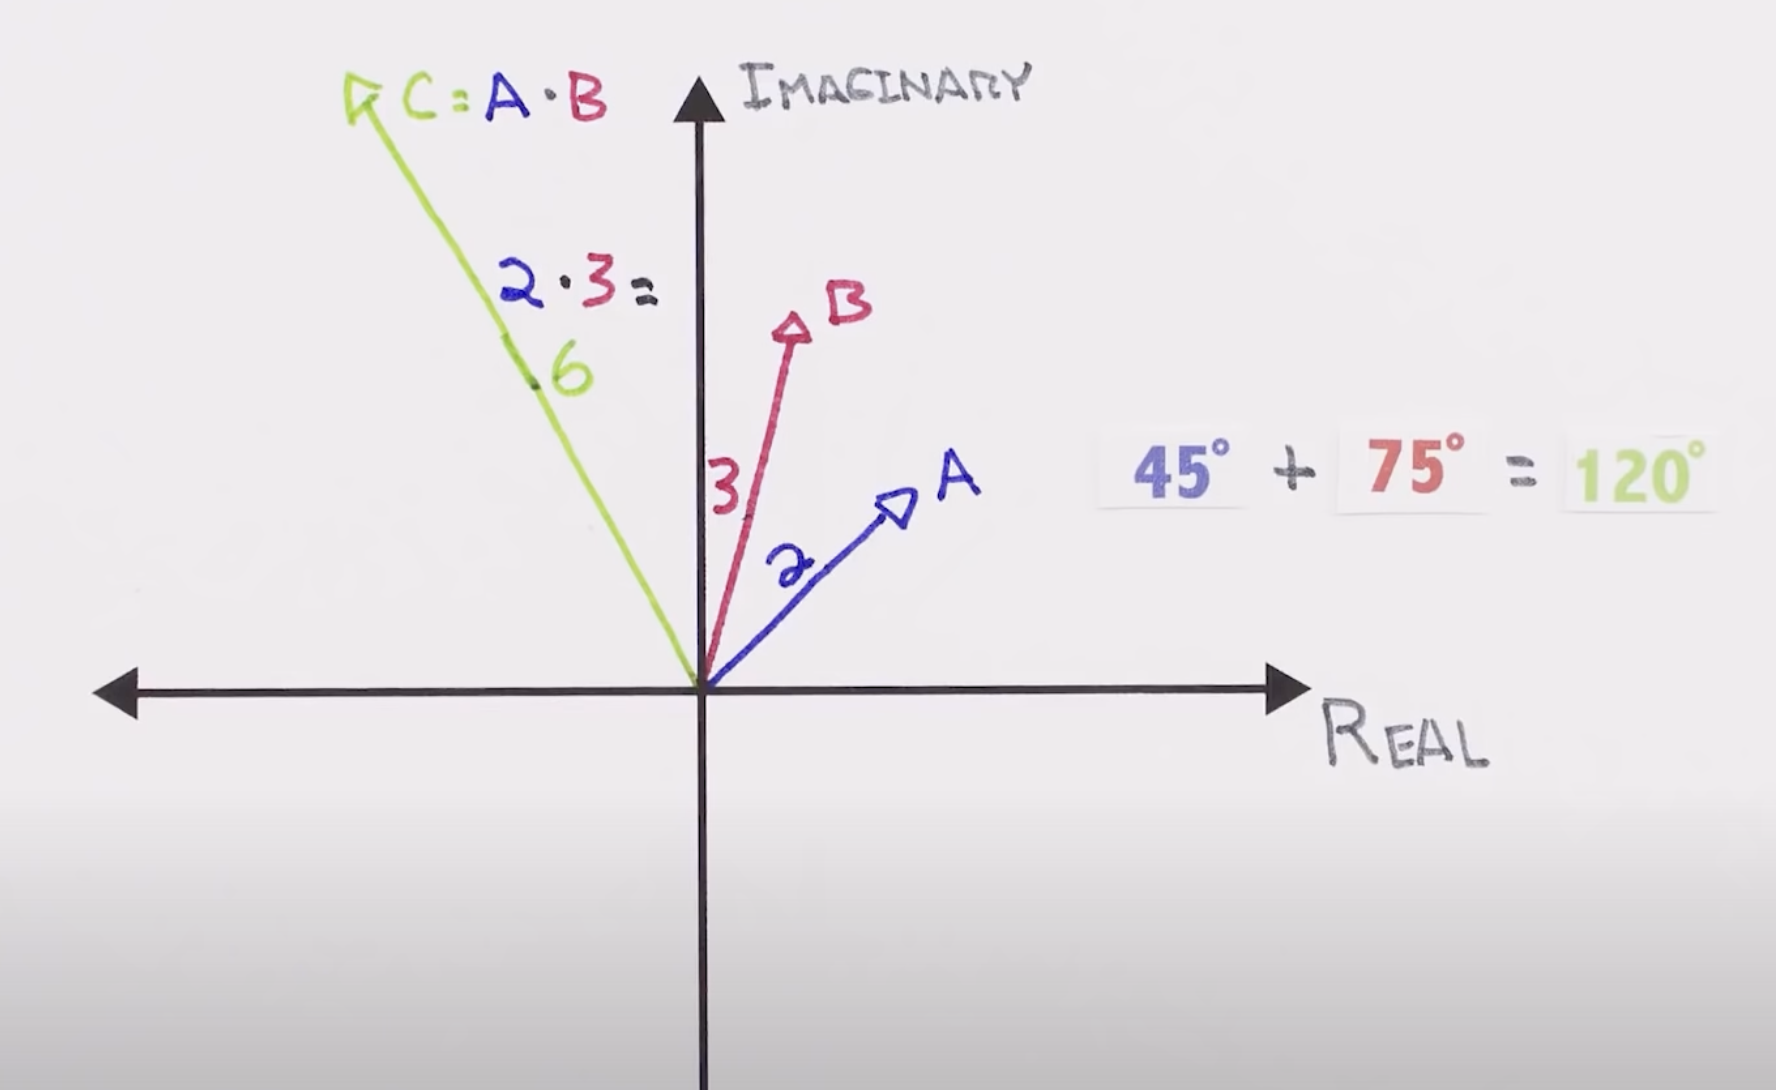 C = A · B
IMAGINARY
2 · 3 =
B
6
3
A
45° + 75° = 120°
2
REAL